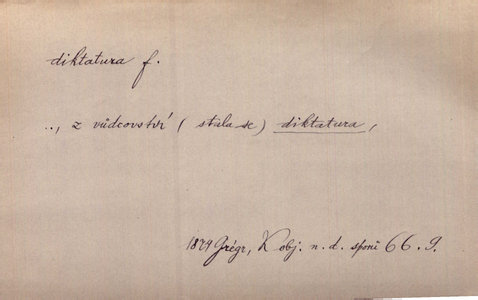 diktatura f.
.., z vůdcovství (stala se) diktatura,
1879 Grégr, K obj. n. d. sporů 66. 9.